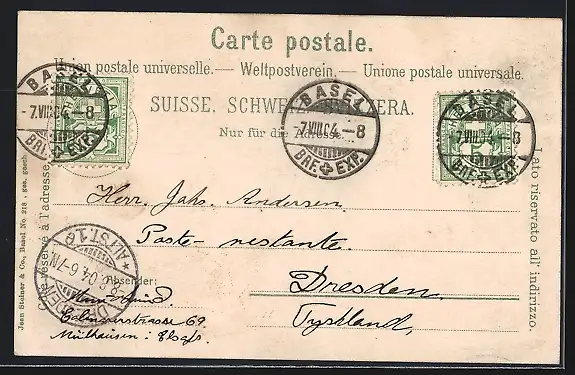 Carte postale.
Union postale universelle. — Weltpostverein. — Unione postale universale.
SUISSE. SCHWEIZ. SVIZZERA.
Nur für die Adresse.
BASEL
-7.VIII.04.-8
BRF. EXP.
BASEL
-7.VIII.04.-8
BRF. EXP.
BASEL
7.VIII.04.-8
BRF. EXP.
Herrn Jahs. Andersen.
Poste-restante.
Dresden.
Tyskland,
ALTST. 16
8.04.6-7N
DRESDEN
Absender:
Colmarerstrasse 69
Mülhausen i Elsass
Côté réservé à l'adresse.
Lato riservato all' indirizzo.
Jean Stehner & Co., Basel No. 218, ges. gesch.